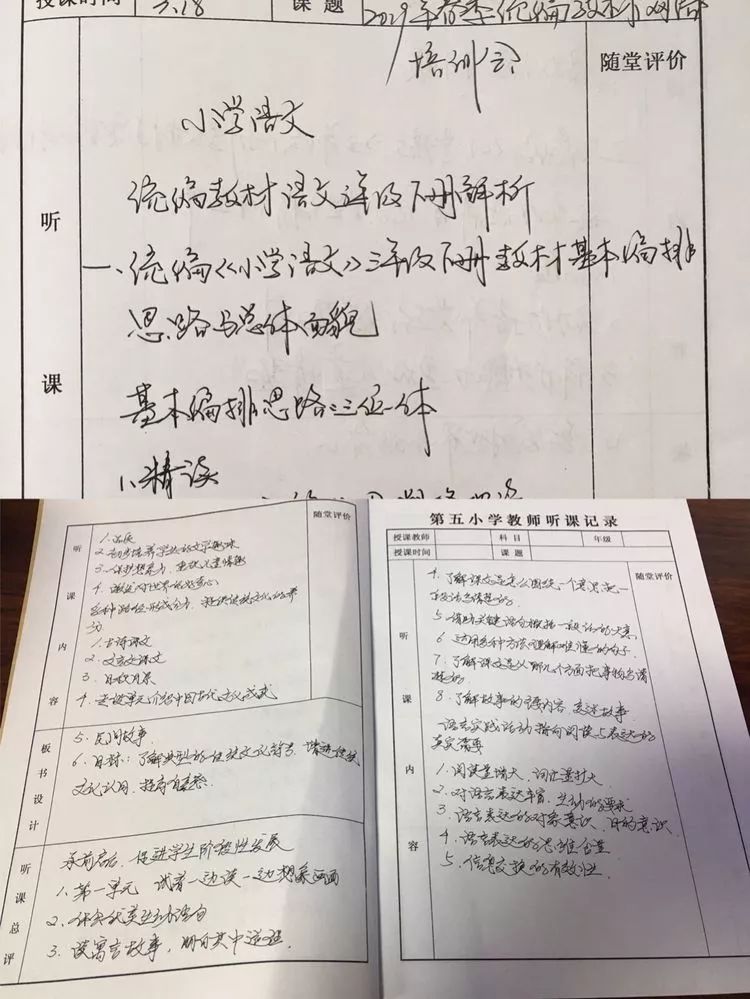 授课时间 3.18 课题 2019年春季统编教材网络
培训会
随堂评价
小学语文
听
统编教材语文三年级下册解析
一、统编《小学语文》三年级下册教材基本编排
思路与总体面貌
课
基本编排思路:三位一体
1、精读
随堂评价
1.
2.初步培养学生的文学趣味
3.保护想象力,重视儿童情趣
4.激发对世界的好奇心
听
课
内
容
1.古诗课文
2.文言文课文
3.日积月累
4.
板书设计
5.民间故事
6.目标:了解典型的传统文化符号,增进传统
文化认同,提高自豪感.
听课总评
承前启后,促进学生阶段性发展
1.第一单元 试着一边读一边想象画面
2.体会优美生动语句
3.读寓言故事,明白其中道理.
第五小学教师听课记录
授课教师 科目 年级
授课时间 课题
随堂评价
听
课
内
容
4.了解课文是怎么围绕一个意思把一
段话写清楚的.
5.借助关键语句概括一段话的大意
6.运用多种方法理解难懂的句子
7.了解课文是从哪几个方面把事物写清
楚的
8.了解故事的主要内容,复述故事
语言实践活动指向阅读与表达的
真实需要
1.阅读量增大,词汇量扩大
2.对语言表达丰富、生动的要求
3.语言表达的对象意识、目的意识
4.语言表达的思维含量
5.信息交换的有效性